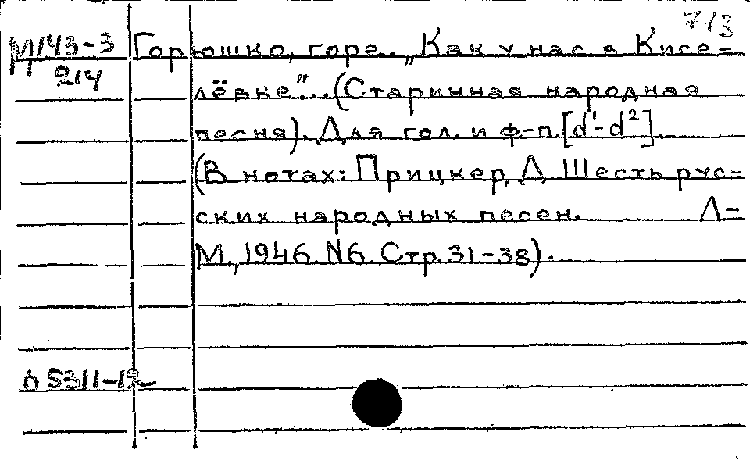 713
М143-3 Горюшко, горе. „Как у нас в Кисе=
214 лёвке"... (Старинная народная
песня). Для гол. и ф-п. [d¹-d²].
(В нотах: Прицкер, Д. Шесть рус=
ских народных песен. Л-
М., 1946. N6. Стр. 31-38).
5311-12